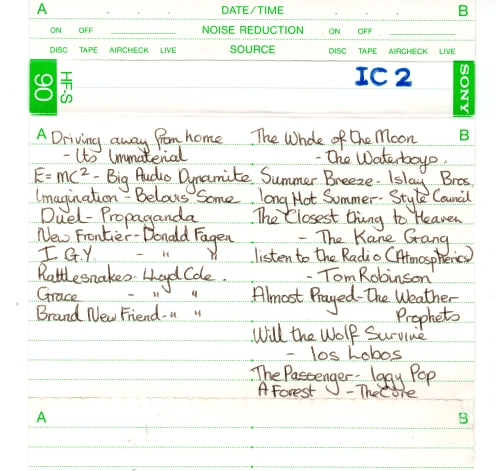 A DATE/TIME B
ON OFF NOISE REDUCTION ON OFF
DISC TAPE AIRCHECK LIVE SOURCE DISC TAPE AIRCHECK LIVE
HF-S 90
IC 2
SONY
A
Driving away from home
- Its Immaterial
E=mc² - Big Audio Dynamite
Imagination - Belouis Some
Duel - Propaganda
New Frontier - Donald Fagen
I.G.Y. - " "
Rattlesnakes - Lloyd Cole.
Grace - " "
Brand New Friend - " "
B
The Whole of the Moon
- The Waterboys.
Summer Breeze - Islay Bros.
long Hot Summer - Style Council
The Closest thing to Heaven
- The Kane Gang
listen to the Radio (Atmospherics)
- Tom Robinson
Almost Prayed - The Weather
Prophets
Will the Wolf Survive
- los Lobos
The Passenger - Iggy Pop
A Forest - The Cure
A B